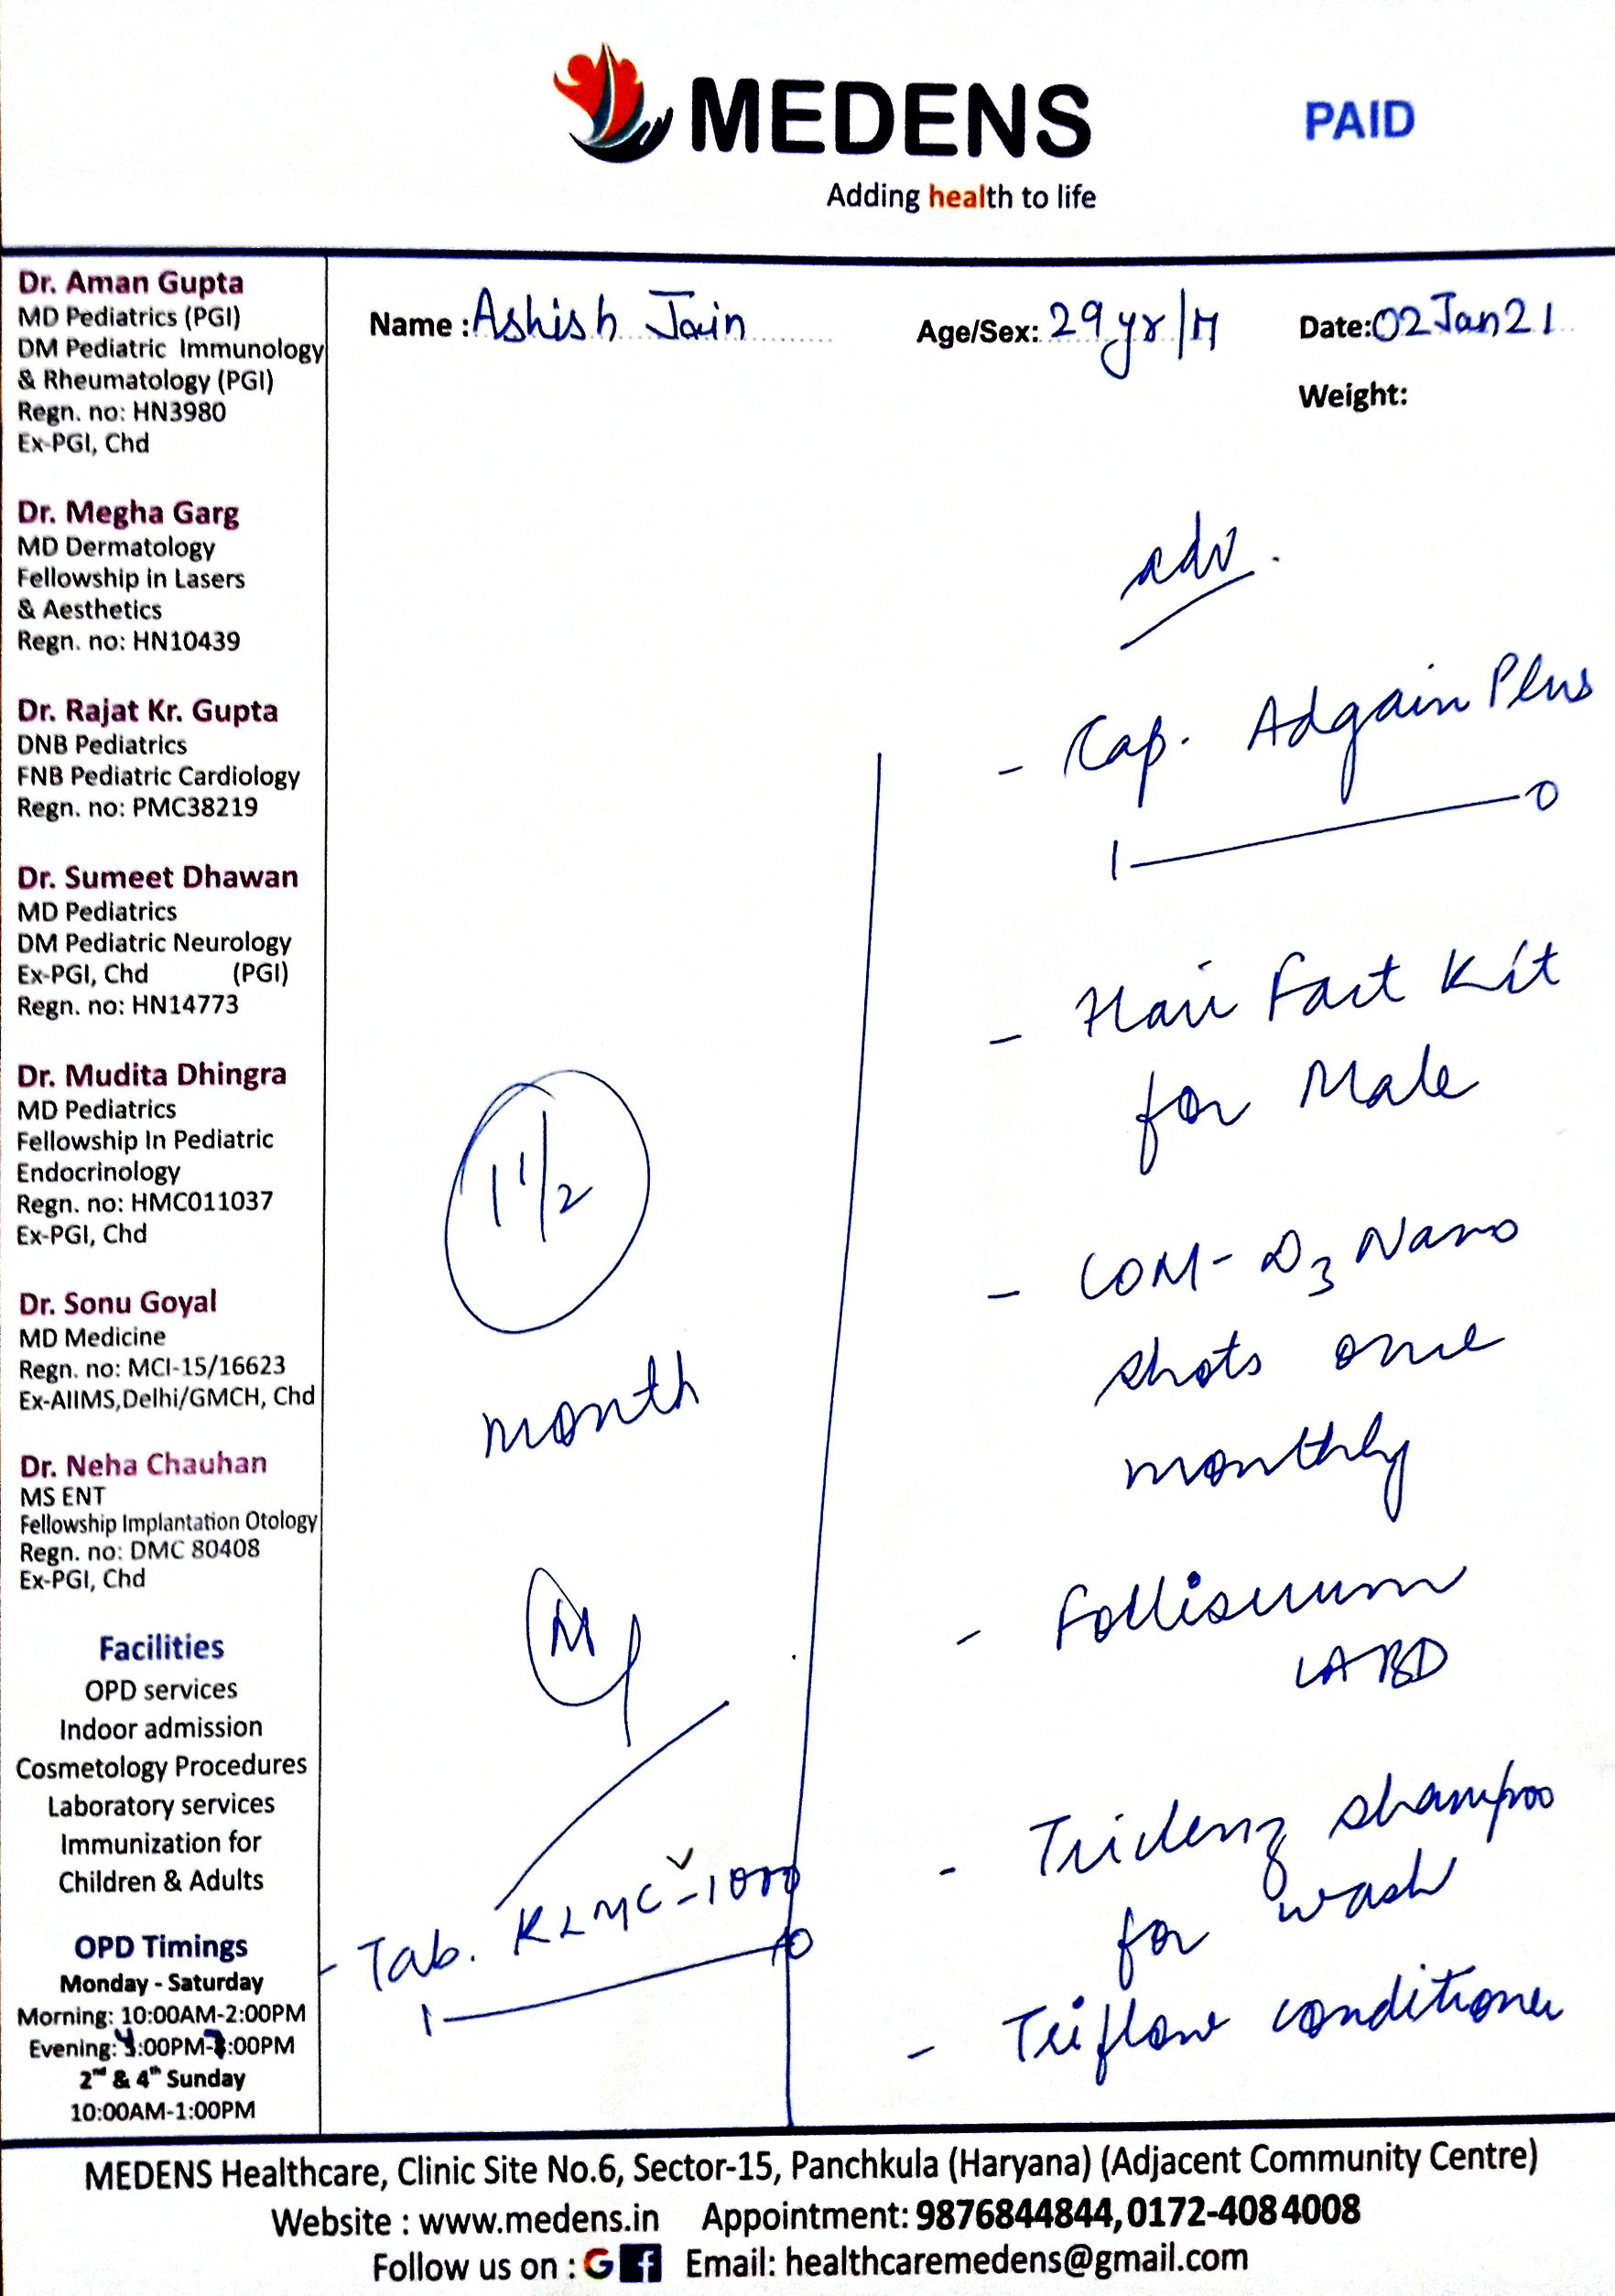 MEDENS
PAID
Adding health to life
Dr. Aman Gupta
MD Pediatrics (PGI)
DM Pediatric Immunology
& Rheumatology (PGI)
Regn. no: HN3980
Ex-PGI, Chd
Dr. Megha Garg
MD Dermatology
Fellowship in Lasers
& Aesthetics
Regn. no: HN10439
Dr. Rajat Kr. Gupta
DNB Pediatrics
FNB Pediatric Cardiology
Regn. no: PMC38219
Dr. Sumeet Dhawan
MD Pediatrics
DM Pediatric Neurology
Ex-PGI, Chd (PGI)
Regn. no: HN14773
Dr. Mudita Dhingra
MD Pediatrics
Fellowship In Pediatric
Endocrinology
Regn. no: HMC011037
Ex-PGI, Chd
Dr. Sonu Goyal
MD Medicine
Regn. no: MCI-15/16623
Ex-AIIMS,Delhi/GMCH, Chd
Dr. Neha Chauhan
MS ENT
Fellowship Implantation Otology
Regn. no: DMC 80408
Ex-PGI, Chd
Facilities
OPD services
Indoor admission
Cosmetology Procedures
Laboratory services
Immunization for
Children & Adults
OPD Timings
Monday - Saturday
Morning: 10:00AM-2:00PM
Evening: :00PM- :00PM
2nd & 4th Sunday
10:00AM-1:00PM
Name : Ashish Jain Age/Sex: 29yr/M Date: 02 Jan 21
Weight:
adv.
- Cap. Adgain Plus
1 — 0
- Hair Fact Kit
for Male
- COM-D3 Nano
shots once
monthly
- Folliserum
LABD
- Tridenz shampoo
for wash
- Triflow conditioner
1 1/2
month
- Tab. KLMC-1000
1 — 0
MEDENS Healthcare, Clinic Site No.6, Sector-15, Panchkula (Haryana) (Adjacent Community Centre)
Website : www.medens.in Appointment: 9876844844, 0172-4084008
Follow us on : G f Email: healthcaremedens@gmail.com